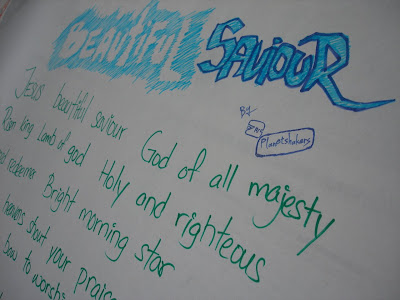 BEAUTIFUL SAVIOUR
By
Planetshakers
Jesus beautiful saviour God of all majesty
king Lamb of god Holy and righteous
redeemer Bright morning star
heavens shout your praise
bow to